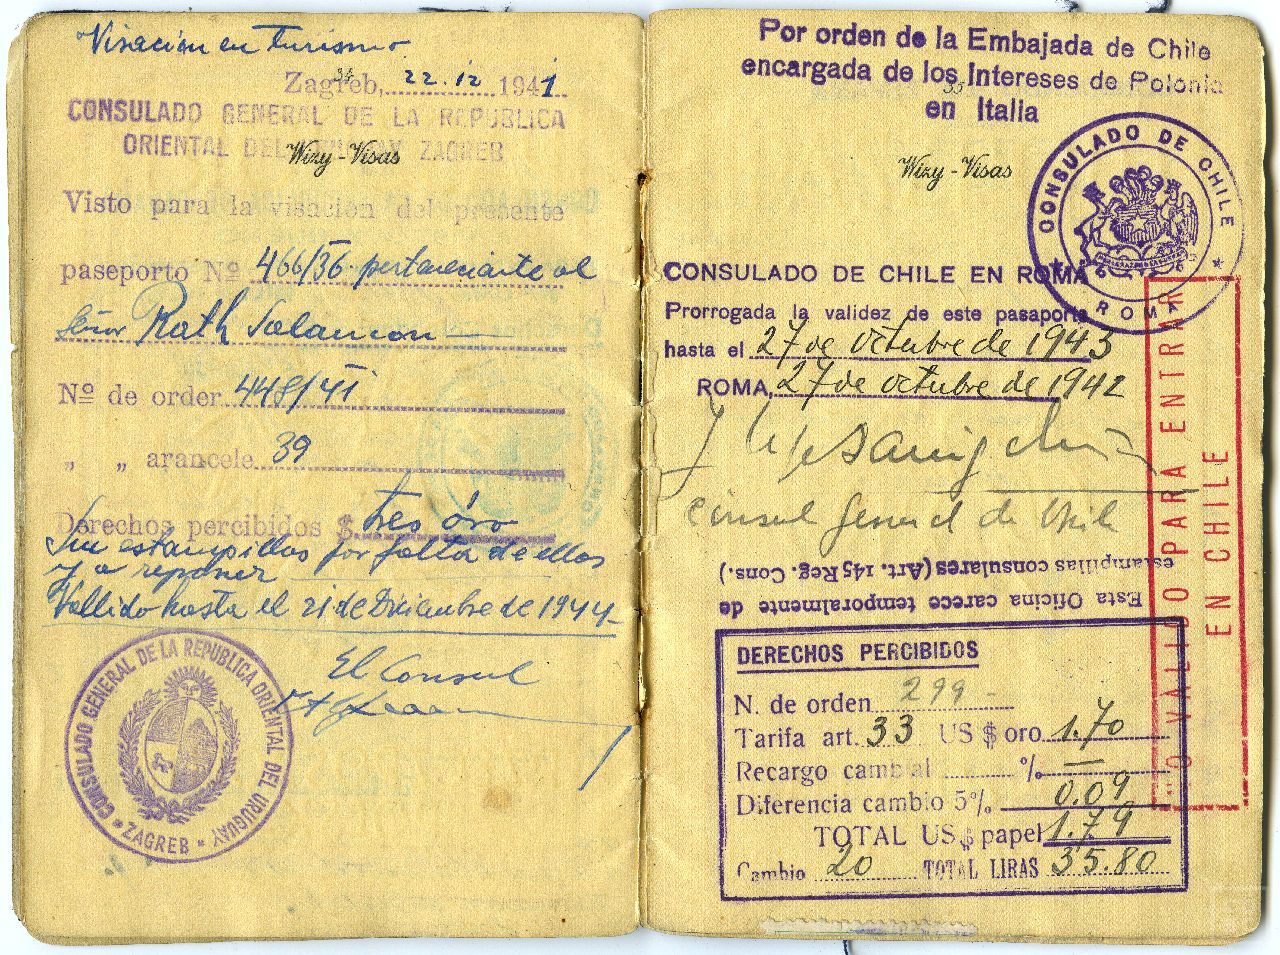 Visación en turismo
34
Zagreb, 22.12 1941.
CONSULADO GENERAL DE LA REPUBLICA
ORIENTAL DEL URUGUAY ZAGREB
Wizy - Visas
Visto para la visación del presente
paseporto Nº 466/36 perteneciente al
señor Rath Salamon
Nº de order 448/41
„ „ arancele 39
Derechos percibidos $ tres óro
Sin estampillas por falta de ellas
y a reponer
Vallido hasta el 21 de Diciembre de 1944
El Consul
CONSULADO GENERAL DE LA REPUBLICA ORIENTAL DEL URUGUAY
* ZAGREB *
Por orden de la Embajada de Chile
encargada de los Intereses de Polonia
en Italia
35
Wizy - Visas
CONSULADO DE CHILE
* ROMA *
CONSULADO DE CHILE EN ROMA
Prorrogada la validez de este pasaporte
hasta el 27 de octubre de 1943
ROMA, 27 de octubre de 1942
Consul General de Chile
Esta Oficina carece temporalmente de
estampillas consulares (Art. 145 Reg. Cons.)
DERECHOS PERCIBIDOS
N. de orden 299 -
Tarifa art. 33 US $ oro 1.70
Recargo cambial % —
Diferencia cambio 5% 0.09
TOTAL US $ papel 1.79
Cambio 20 TOTAL LIRAS 35.80
O VALIDO PARA ENTRAR
EN CHILE